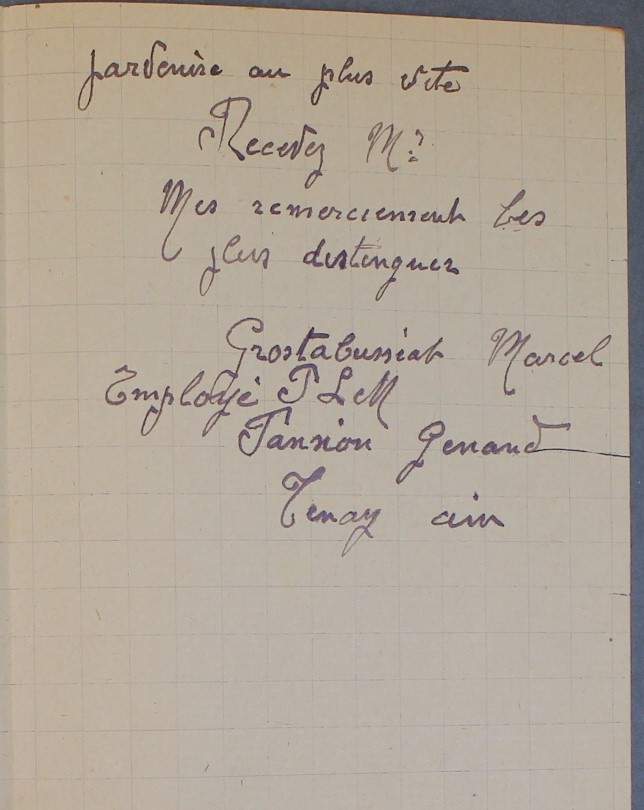 parvenire au plus vite
Recevez Mr
Mes remerciement Les
plus distinguer
Grostabussiat Marcel
Employé PLM
Pansion Genand
Tenay ain